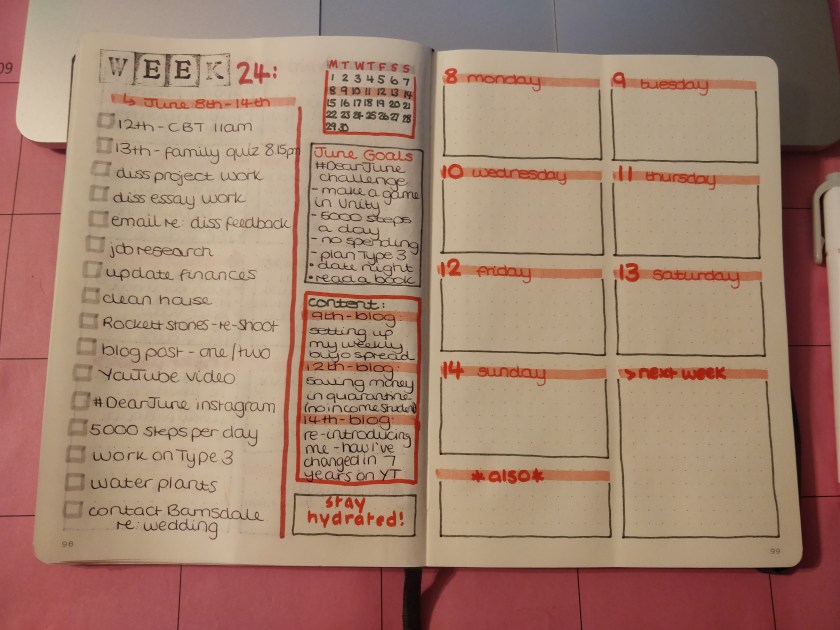 WEEK 24:
↳ June 8th-14th
12th - CBT 11am
13th - family quiz 8.15pm
diss project work
diss essay work
email re: diss feedback
job research
update finances
clean house
Rockett stones - re-shoot
blog post - one/two
YouTube video
#DearJune instagram
5000 steps per day
work on Type 3
water plants
contact Barnsdale
re: wedding
98
M T W T F S S
1 2 3 4 5 6 7
8 9 10 11 12 13 14
15 16 17 18 19 20 21
22 23 24 25 26 27 28
29 30
June Goals
#DearJune
challenge
- make a game
in Unity
- 5000 steps
a day
- no spending
- plan Type 3
• date night
• read a book
content:
9th - blog:
setting up
my weekly
bujo spread
12th - blog:
Saving money
in quarantine
(no income student)
14th - blog:
re-introducing
me - how I've
changed in 7
years on YT
stay
hydrated!
8 monday
9 tuesday
10 wednesday
11 thursday
12 friday
13 saturday
14 sunday
> next week
*also*
99
09